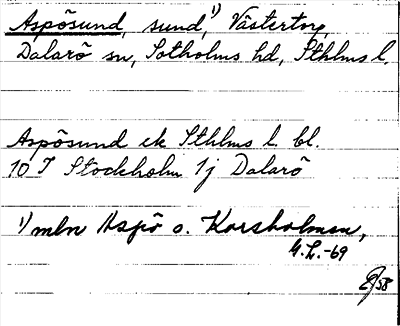 Aspösund, sund,¹⁾ Västertorp,
Dalarö sn, Sotholms hd, Sthlms l.
Aspösund ek Sthlms l. bl.
10 I Stockholm 1j Dalarö
¹⁾ mln Aspö o. Korsholmen,
G.L.-69